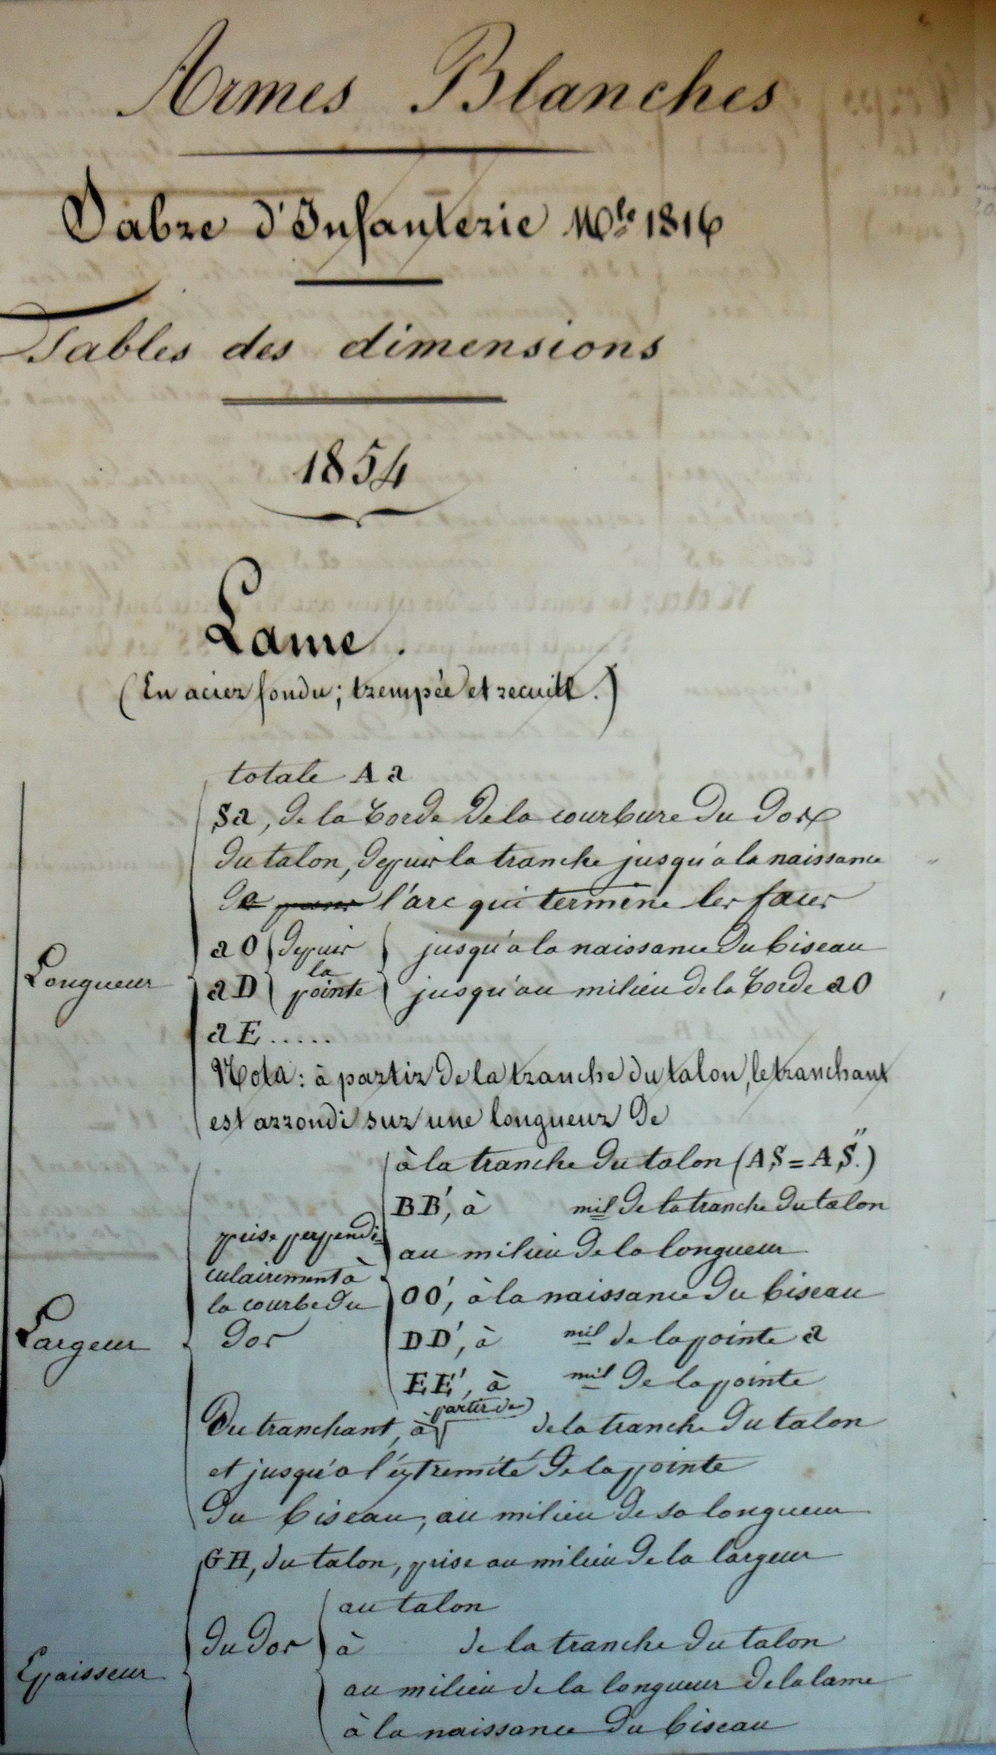 Armes Blanches
Sabre d'Infanterie Mle 1816
Tables des dimensions
1854
Lame.
(En acier fondu; trempée et recuite.)
Longueur
totale A a
Sa, de la corde de la courbure du dos
du talon, depuis la tranche jusqu'à la naissance
de l'arc qui termine les faces
a O depuis jusqu'à la naissance du biseau
la
a D pointe jusqu'au milieu de la corde a O
a E.....
Nota: à partir de la tranche du talon, le tranchant
est arrondi sur une longueur de
Largeur
prise perpendi=
culairement à
la courbe du
dos
à la tranche du talon (AS = AS".)
BB', à mil de la tranche du talon
au milieu de la longueur
OO', à la naissance du biseau
DD', à mil de la pointe a
EE', à mil de la pointe
partir de
Du tranchant, à de la tranche du talon
et jusqu'à l'extremité de la pointe
du biseau, au milieu de sa longueur
Epaisseur
GH, du talon, prise au milieu de la largeur
du dos
au talon
à de la tranche du talon
au milieu de la longueur de la lame
à la naissance du biseau